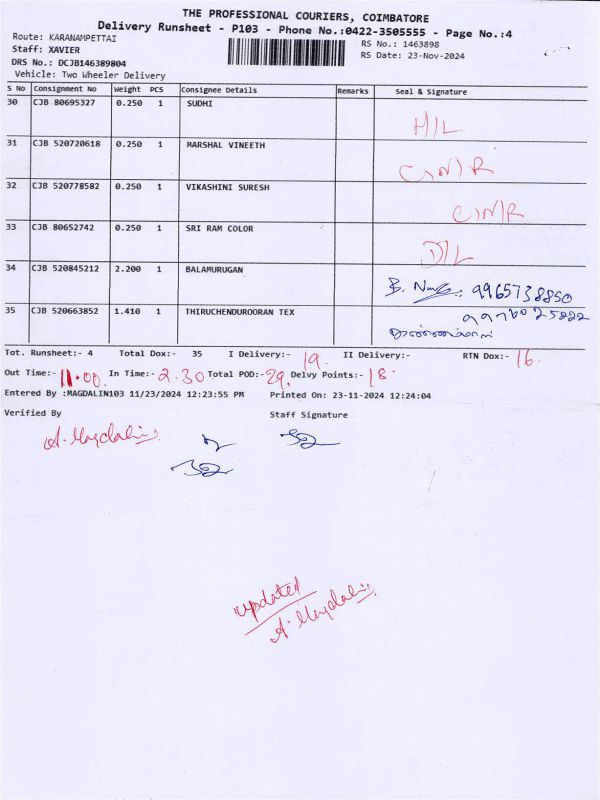 THE PROFESSIONAL COURIERS, COIMBATORE
Delivery Runsheet - P103 - Phone No.:0422-3505555 - Page No.:4
Route: KARANAMPETTAI
RS No.: 1463898
Staff: XAVIER
RS Date: 23-Nov-2024
DRS No.: DCJB146389804
Vehicle: Two Wheeler Delivery
S No Consignment No Weight PCS Consignee Details Remarks Seal & Signature
30 CJB 80695327 0.250 1 SUDHI
H/L
31 CJB 520720618 0.250 1 MARSHAL VINEETH
C/N/R
32 CJB 520778582 0.250 1 VIKASHINI SURESH
C/N/R
33 CJB 80652742 0.250 1 SRI RAM COLOR
D/L
34 CJB 520845212 2.200 1 BALAMURUGAN
9965738850
35 CJB 520663852 1.410 1 THIRUCHENDUROORAN TEX
Tot. Runsheet:- 4 Total Dox:- 35 I Delivery:- 19. II Delivery:- RTN Dox:- 16.
Out Time:- 11.00 In Time:- 2.30 Total POD:- 29, Delvy Points:- 18.
Entered By :MAGDALIN103 11/23/2024 12:23:55 PM Printed On: 23-11-2024 12:24:04
Verified By Staff Signature
A. Magdalin
updated
A. Magdalin